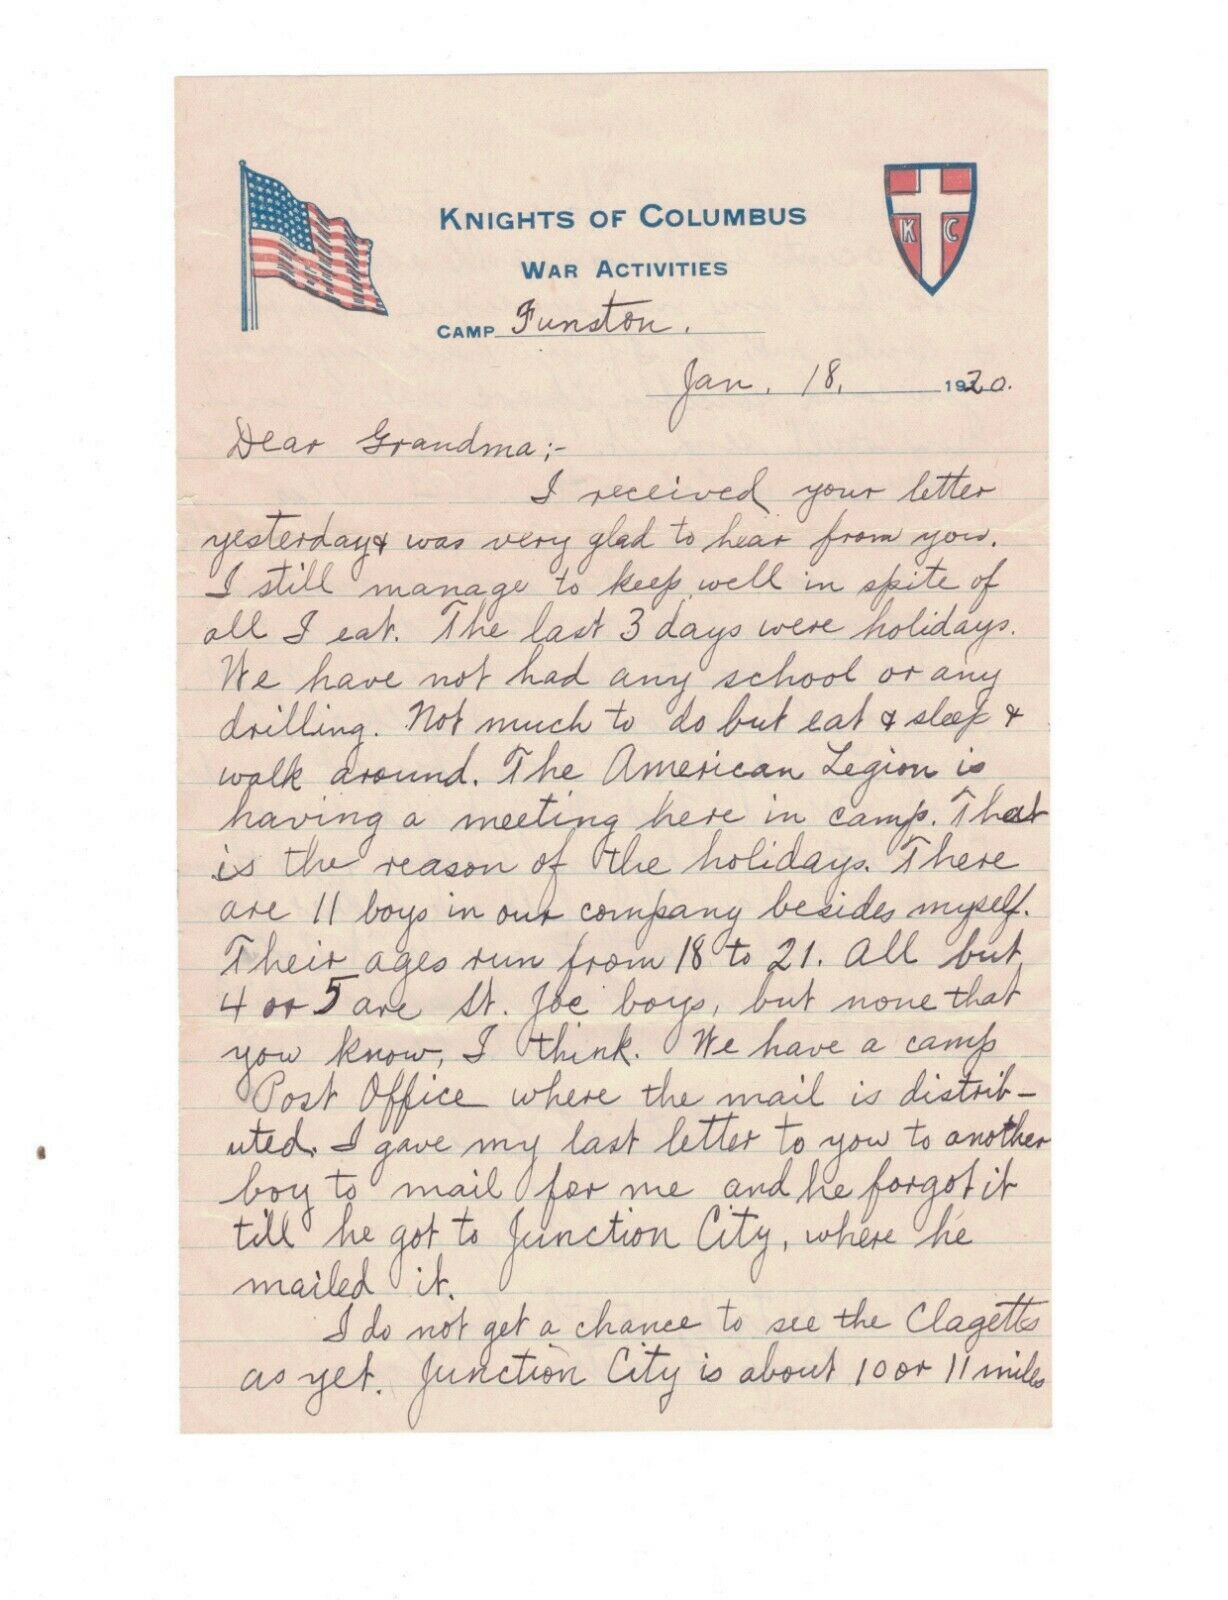 KNIGHTS OF COLUMBUS
WAR ACTIVITIES
K C
CAMP Funston.
Jan. 18, 1920.
Dear Grandma;-
I received your letter
yesterday & was very glad to hear from you.
I still manage to keep well in spite of
all I eat. The last 3 days were holidays.
We have not had any school or any
drilling. Not much to do but eat & sleep &
walk around. The American Legion is
having a meeting here in camp. That
is the reason of the holidays. There
are 11 boys in our company besides myself.
Their ages run from 18 to 21. All but
4 or 5 are St. Joe boys, but none that
you know, I think. We have a camp
Post Office where the mail is distrib-
uted. I gave my last letter to you to another
boy to mail for me and he forgot it
till he got to Junction City, where he
mailed it.
I do not get a chance to see the Clagetts
as yet. Junction City is about 10 or 11 miles